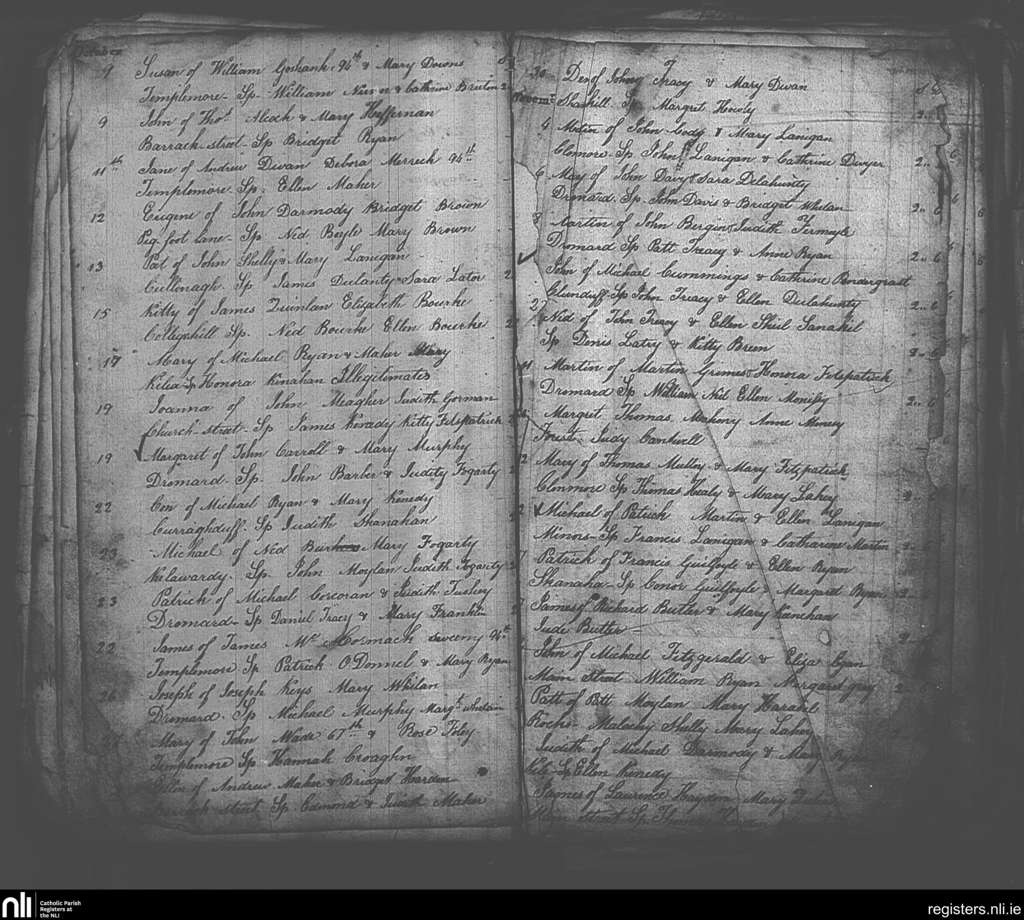 October
9 Susan of William Goshank 94th & Mary Downs
Templemore - Sp - William & Catherine
9 John of Thos. Meath & Mary Heffernan
Barrack street - Sp Bridget Ryan
11th Jane of Andrew Dwan Debora Merrick 94th
Templemore Sp. Ellen Maher
12 Eugene of John Darmody Bridget Brown
Pig foot lane - Sp Ned Boyle Mary Brown
13 Pat of John Shelly & Mary Lanigan
Cullenagh Sp James Dulanty & Sara Lator
15 Kitty of James Quinlan Elizabeth Bourke
Collegehill Sp. Ned Bourke Ellen Bourke
17 Mary of Michael Ryan & Maher Mary
Kilea Sp Honora Kinahan Illegitimates
19 Joanna of John Meagher Judith Gorman
Church street - Sp James Kenedy Kitty Fitzpatrick
19 Margaret of John Carroll & Mary Murphy
Dromard - Sp. John Barber & Judity Fogarty
22 Con of Michael Ryan & Mary Kenedy
Curraghduff. Sp Judith Shanahan
23 Michael of Ned Mary Fogarty
Kilawardy. Sp. John Moylan Judith Fogarty
23 Patrick of Michael Corcoran & Judith Tushey
Dromard - Sp Daniel Tracy & Mary Franklin
22 James of James Mc Mormach 94th
Templemore Sp Patrick O'Donnel & Mary Ryan
26 Joseph of Joseph Keys Mary Whelan
Dromard. Sp Michael Murphy Margt. Whelan
Mary of John Wade 67th & Rose Foley
Templemore Sp Hannah Croaghn
Ellen of Andrew Maher & Bridget Harden
street Sp. Edmond & Judith Maher
30 Den of John Tracy & Mary Dwan
Novemr. Shanhill Sp Margret Hewly
4 Martin of John Cody & Mary Lanigan
Clonmore - Sp John Lanigan & Catherine Dwyer 2.. 6
6 May of John Davy & Sara Delahunty
Dromard. Sp. John Davis & Bridget Whelan 2.. 6
8 Martin of John Bergin Judith Termoyle
Dromard Sp Patt Treacy & Anne Ryan 2.. 6
John of Michael Cummings & Catherine Prendergrast
Glanduff - Sp John Treacy & Ellen Dulahunty 2.. 6
Ned of John Treacy & Ellen Shiil Sanakil
Sp Denis Latry & Kitty Breen
Martin of Martin Grimes & Honora Fitzpatrick
Dromard Sp William Neil Ellen 2.. 6
Margret Thomas Mahony Anne
Forest. Judy Cantwell
Mary of Thomas Mulloy & Mary Fitzpatrick
Clonmore Sp Thomas Healy & Mary Lahey
Michael of Patrick Martin & Ellen Lanigan
Minors - Sp Francis Lanigan & Catharine Martin
Patrick of Francis Guilfoyle & Ellen Ryan
Shanaha - Sp Conor Guilfoyle & Margaret Ryan
James of Richard Butler & Mary
Jude Butler -
John of Michael Fitzgerald & Eliza Egan
Main Street William Ryan Margaret Grey
Patt of Patt Moylan Mary Harahil
Rochs - Malachy Shelly Mary Lahey
Judith of Michael Darmody & Mary
Sp Ellen Kenedy
James of Laurence Haydon Mary
Street Sp
nli Catholic Parish
Registers at
the NLI
registers.nli.ie